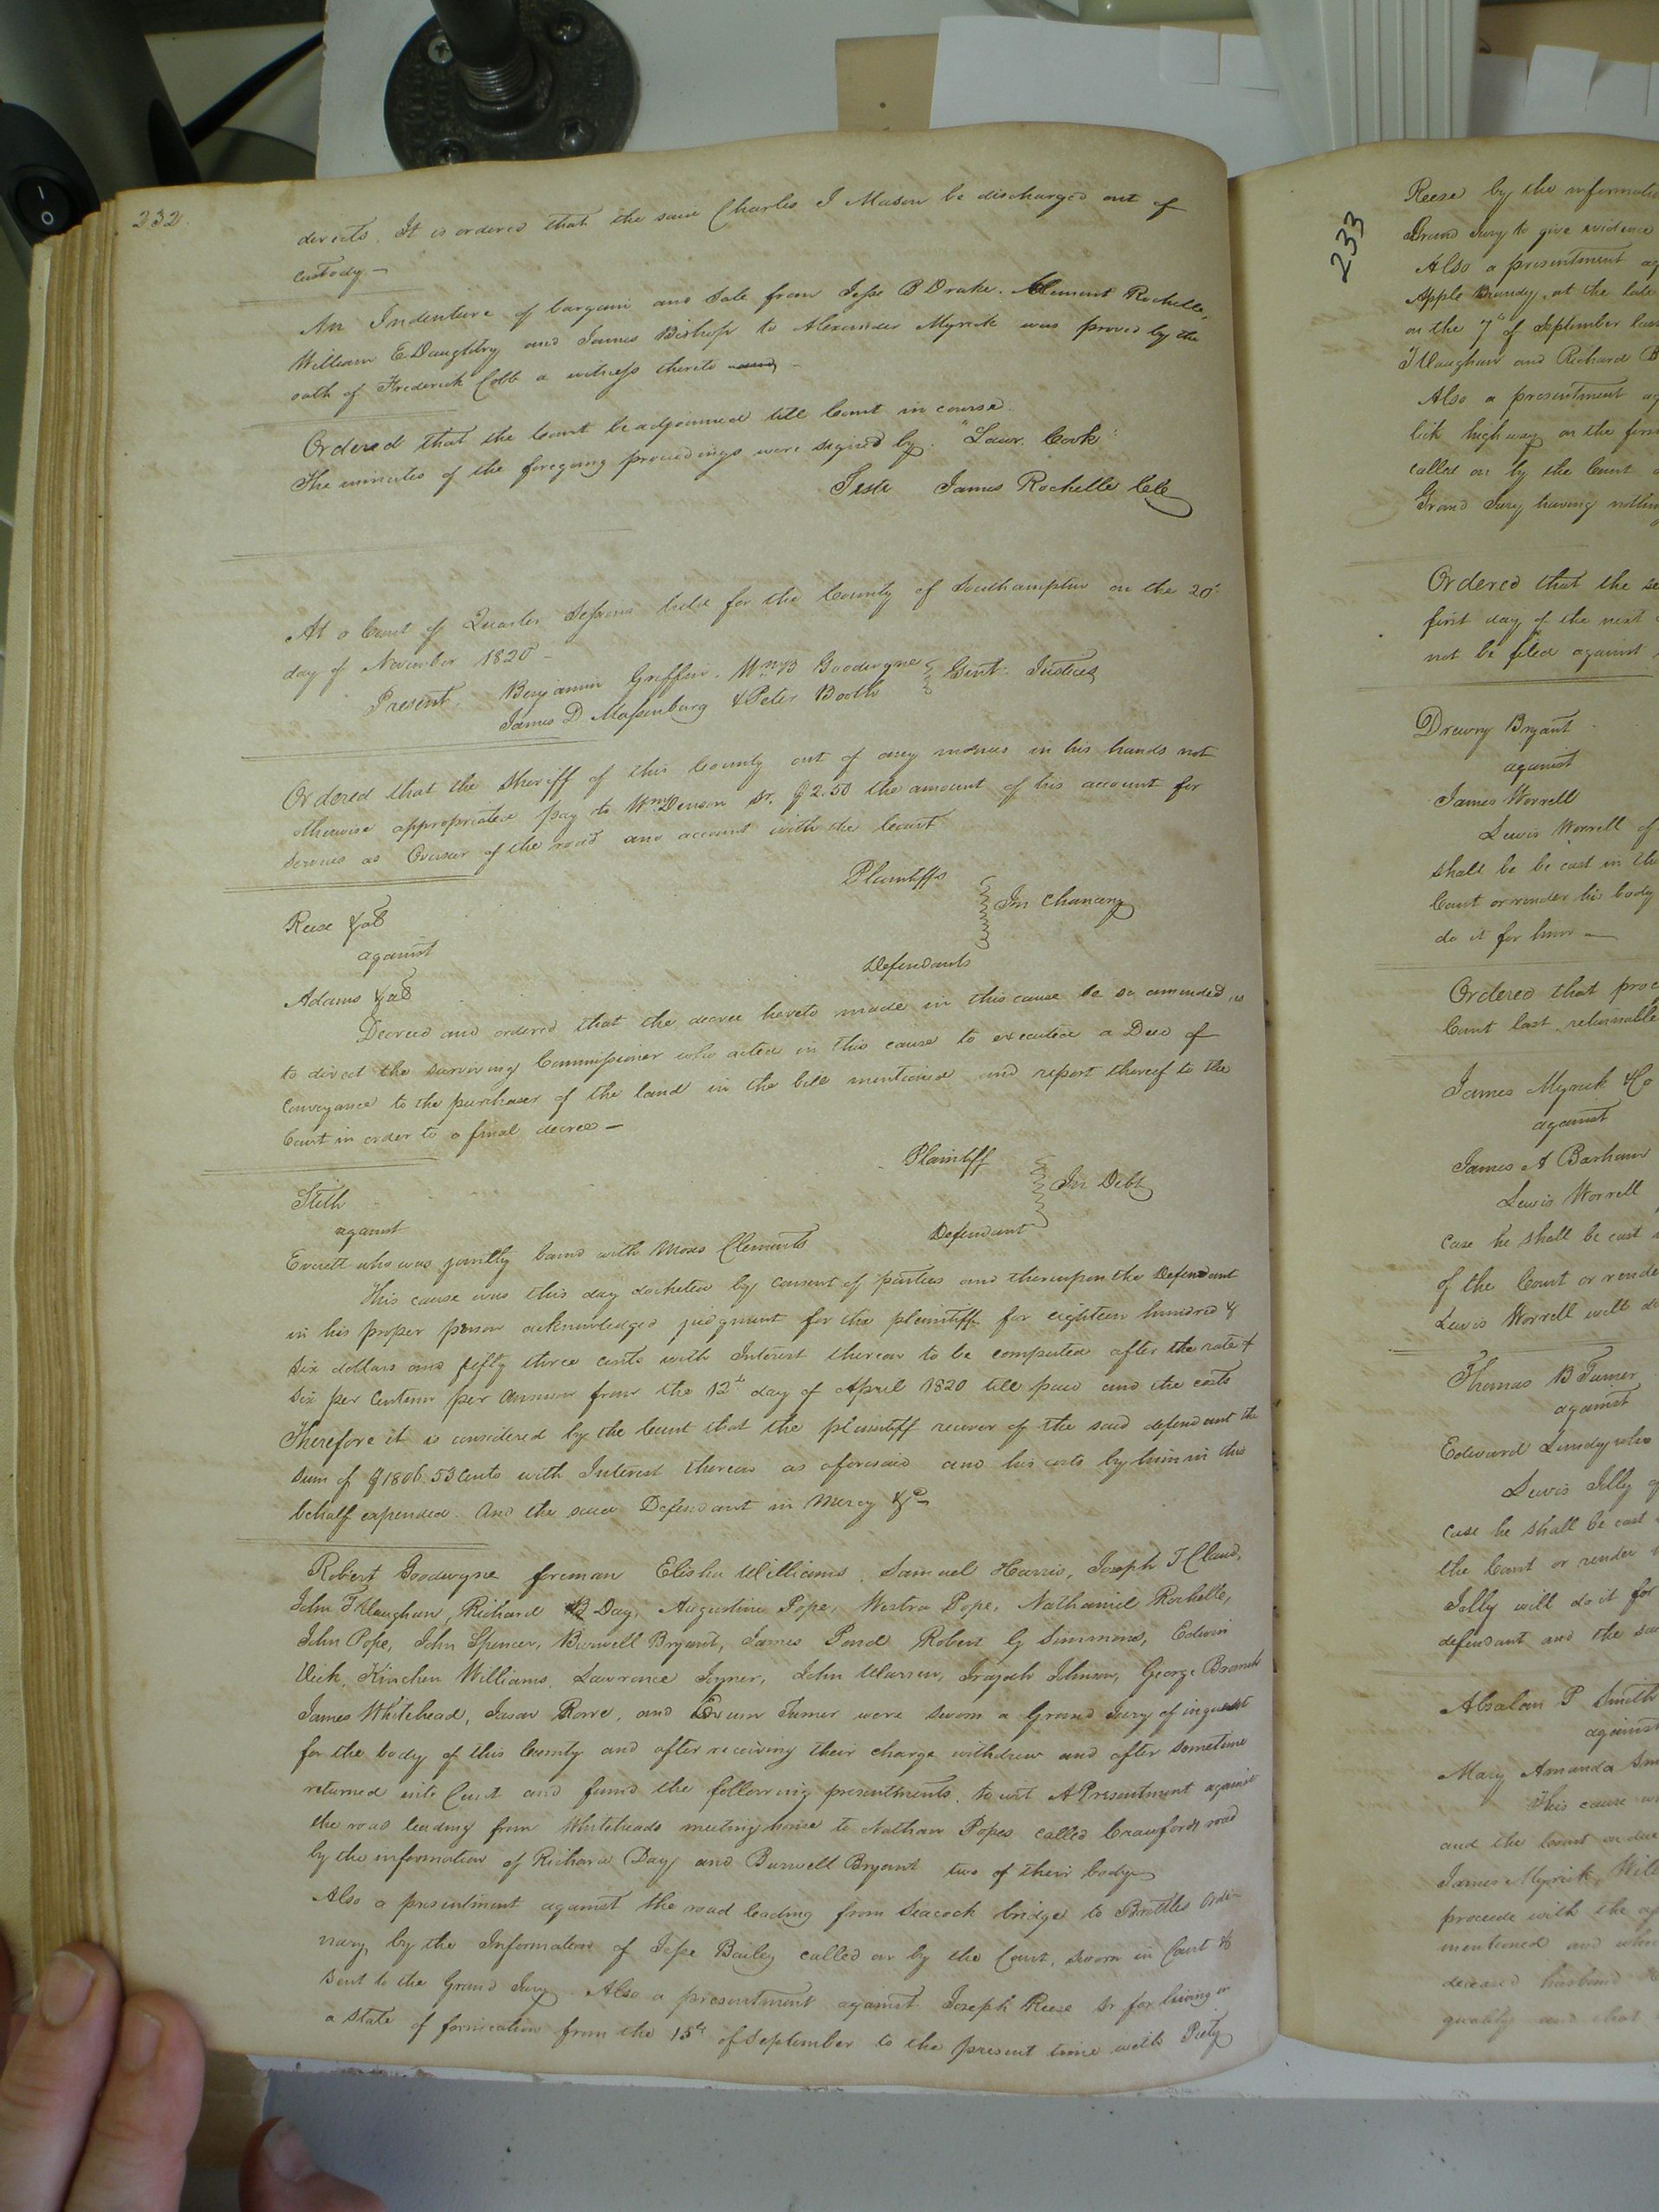 232
directs. It is ordered that the said Charles I Mason be discharged out of
custody —
An Indenture of bargain and Sale from Jesse B Drake. Clement Rochelle,
William E. Daughtry and James Bishop to Alexander Myrick was proved by the
oath of Frederick Cobb a witness thereto and —
Ordered that the Court be adjourned till Court in course.
The minutes of the foregoing proceedings were signed by. "Lawr. Cook"
Teste James Rochelle ClC
At a Court of Quarter Sessions held for the County of Southampton on the 20th
day of November 1820 —
Present, Benjamin Griffin, Wm B Goodwyne
James D Massenburg & Peter Booth
Gent. Justices
Ordered that the Sheriff of this County out of any monies in his hands not
otherwise appropriated pay to Wm Denson Sr. $2.50 the amount of his account for
services as Overseer of the road and account with the Court
Reese &als
Plaintiffs
against
In Chancery
Adams &als
Defendants
Decreed and ordered that the decree hereto made in this cause be so amended, as
to direct the surviving Commissioner who acted in this cause to executed a Deed of
Conveyance to the purchaser of the land in the bill mentioned and report thereof to the
Court in order to a final decree —
Stith
Plaintiff
against
In Debt
Everett who was jointly bound with Moses Clements
Defendant
This cause was this day docketed by consent of parties and thereupon the Defendant
in his proper person acknowledged judgment for the plaintiff for eighteen hundred &
six dollars and fifty three cents with Interest thereon to be computed after the rate of
Six per Centum per Annum from the 12th day of April 1820 till paid and the costs
Therefore it is considered by the Court that the plaintiff recover of the said defendant the
sum of $1806.53 Cents with Interest thereon as aforesaid and his costs by him in this
behalf expended. And the said Defendant in Mercy &c —
Robert Goodwyne foreman Elisha Williams, Samuel Harris, Joseph T Claud,
John T Vaughan, Richard B Day, Augustine Pope, Westra Pope, Nathaniel Rochelle,
John Pope, John Spencer, Burwell Bryant, James Pond Robert G Simmons, Edwin
Vick, Kinchen Williams, Lawrence Joyner, John Warren, Josajah Johnson, George Branch
James Whitehead, Jason Rowe, and Exum Turner were sworn a Grand Jury of inquest
for the body of this County and after receiving their charge withdrew and after sometime
returned into Court and found the following presentments. to wit A Presentment against
the road leading from Whiteheads meetinghouse to Nathan Popes called Crawfords road
by the information of Richard Day and Burwell Bryant two of their body
Also a presentment against the road leading from Seacock bridge to Brittles Ordi-
nary, by the Information of Jesse Bailey called on by the Court, sworn in Court &
sent to the Grand Jury. Also a presentment against Joseph Reese Sr for living in
a State of fornication from the 15th of September to the present time with Piety
233
Reese by the informatio
Grand Jury to give evidence
Also a presentment ag
Apple Brandy, at the late
on the 7th of September last
T Vaughan and Richard B
Also a presentment ag
lick highway on the
called on by the Court
Grand Jury having nothin
Ordered that the se
first day of the next
not be filed against
Drewry Bryant
against
James Worrell
Lewis Worrell of
shall be be cast in the
Court or render his body
do it for him —
Ordered that proc
Court last returnable
James Myrick &Co
against
James A Barham
Lewis Worrell
case he shall be cast
of the Court or rende
Lewis Worrell will do
Thomas B Turner
against
Edward Lundy who
Lewis Jolly of
case he shall be cast
the Court or render
Jolly will do it for
defendant and the sa
Absalom P Smith
against
Mary Amanda Sm
This cause wa
and the Court
James Myrick, Wil
proceede with the
mentioned and
deceased husband
quality and that